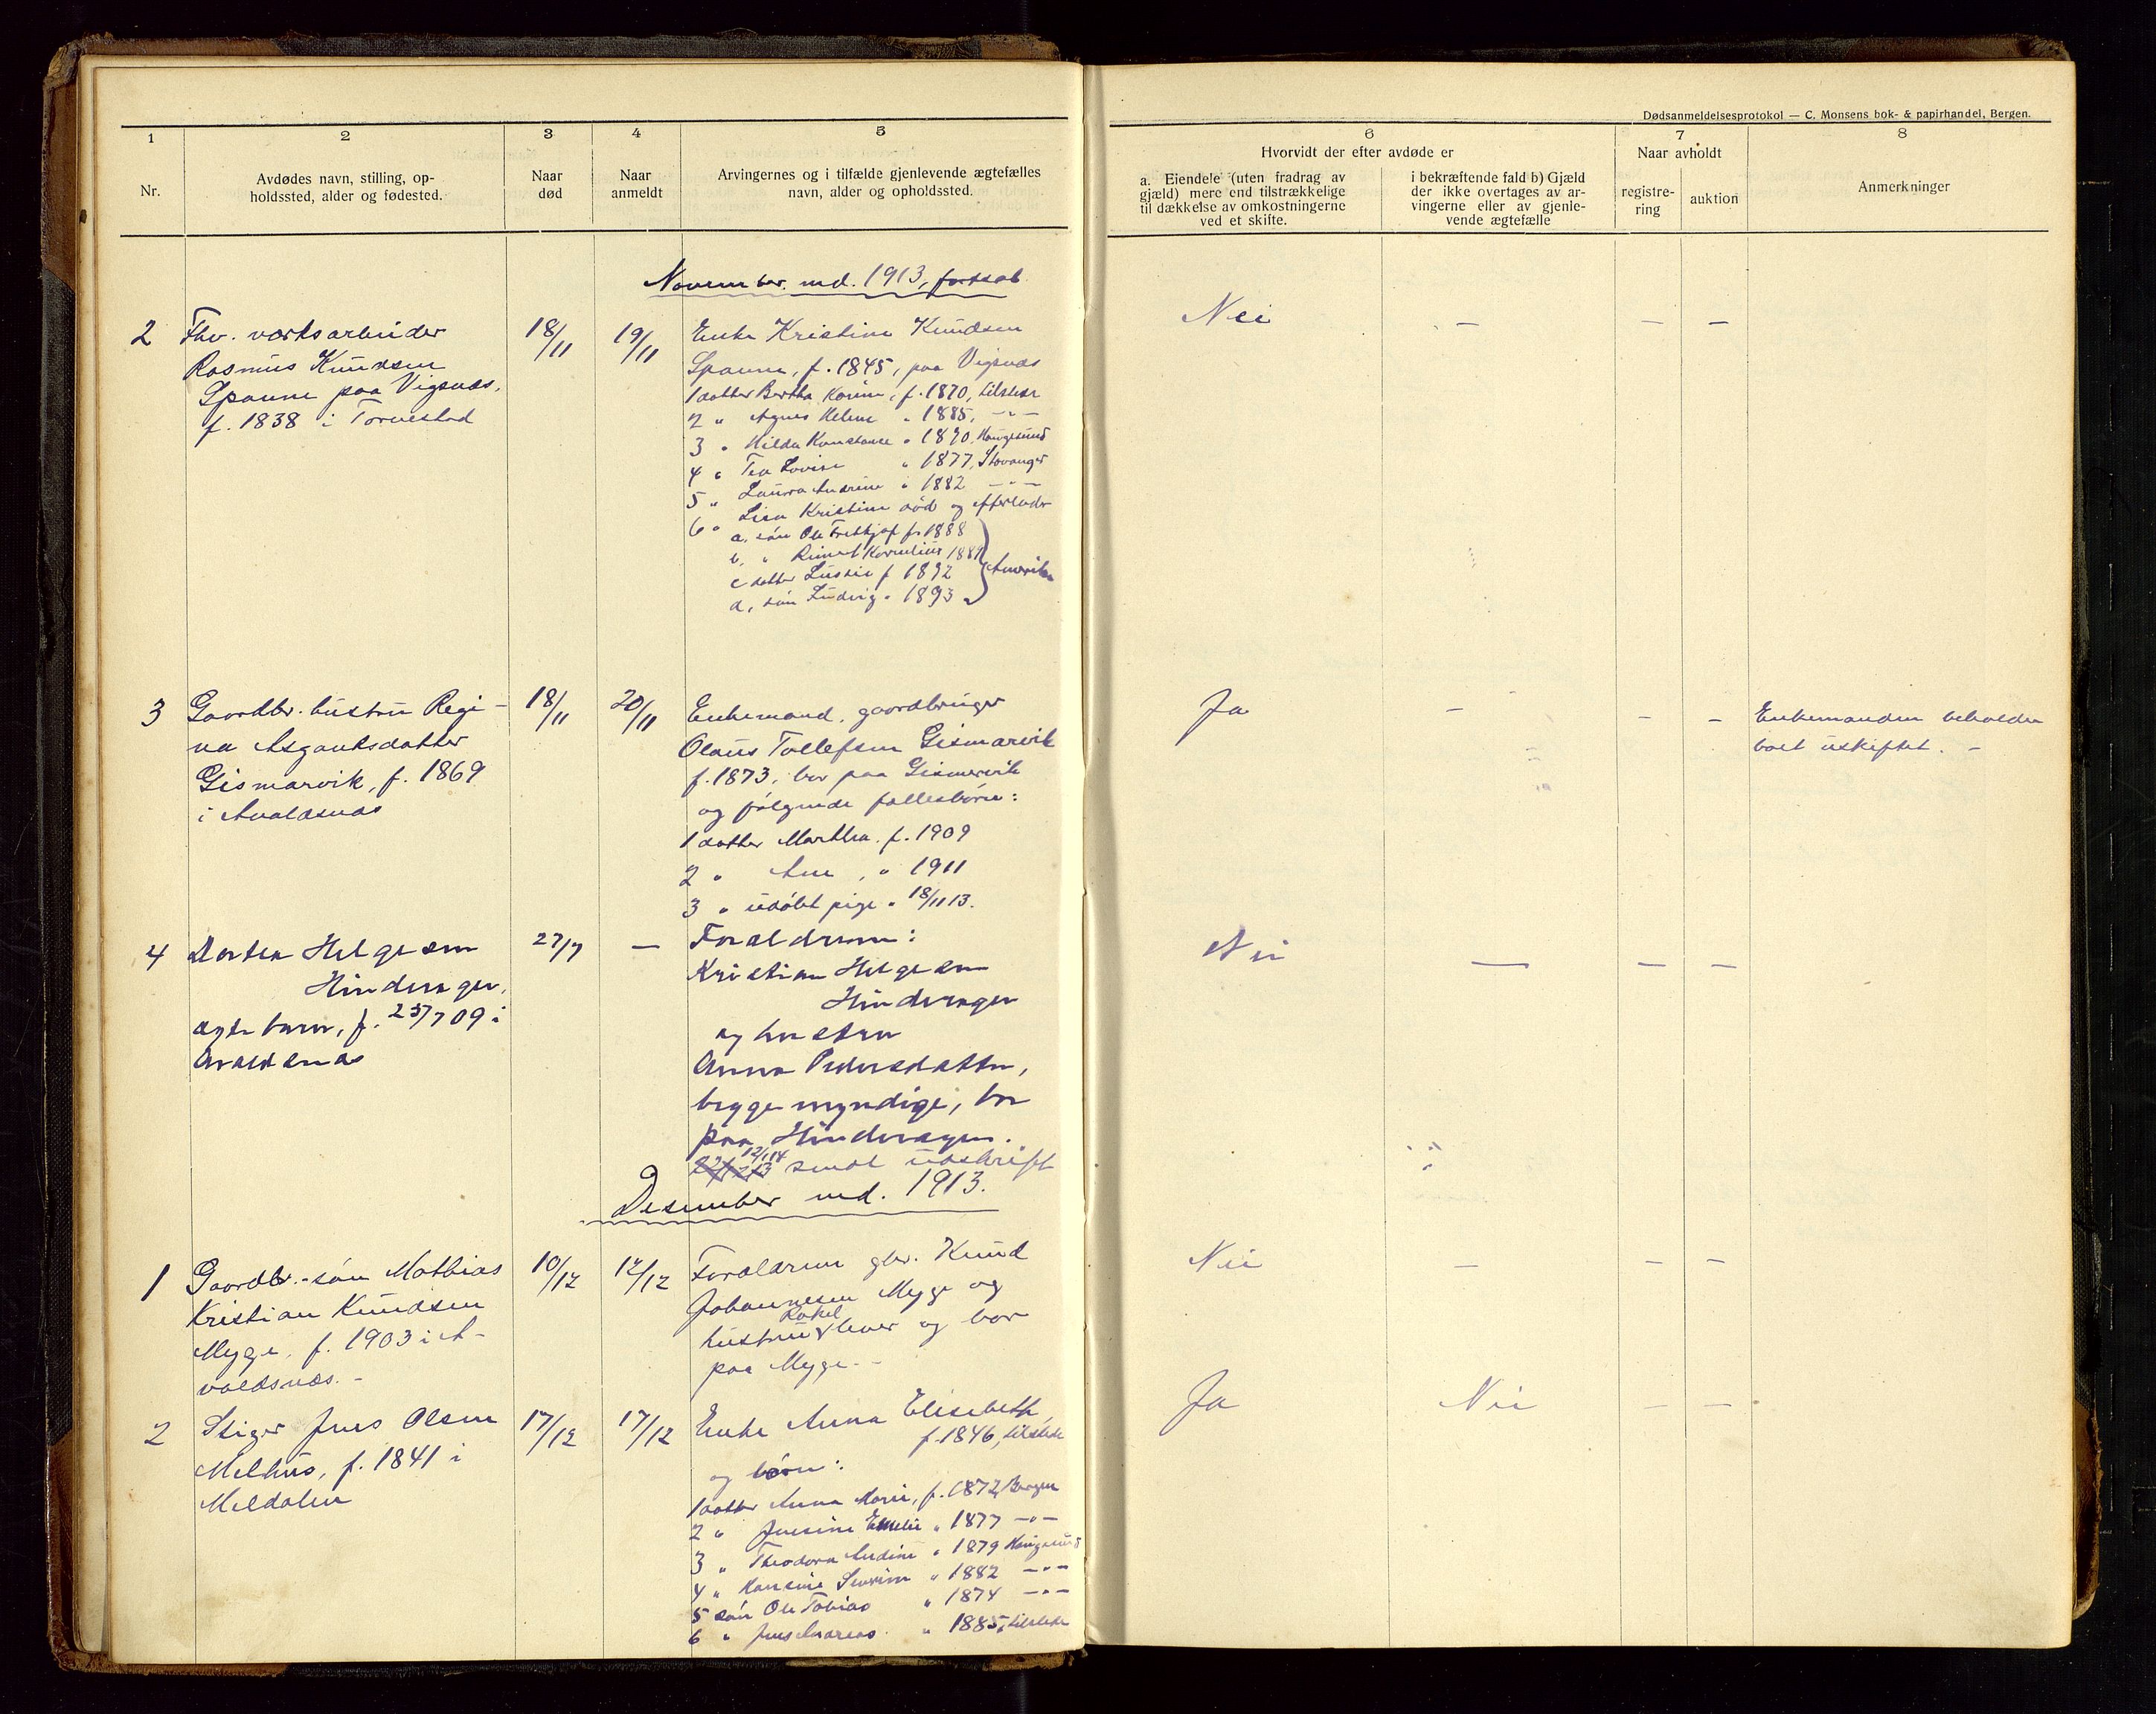 Dødsanmeldelsesprotokol — C. Monsens bok- & papirhandel, Bergen.
1 2 3 4 5 6 7 8
Nr.
Avdødes navn, stilling, op-
holdssted, alder og fødested.
Naar
død
Naar
anmeldt
Arvingernes og i tilfælde gjenlevende ægtefælles
navn, alder og opholdssted.
Hvorvidt der efter avdøde er
a. Eiendele (uten fradrag av
gjæld) mere end tilstrækkelige
til dækkelse av omkostningerne
ved et skifte.
i bekræftende fald b) Gjæld
der ikke overtages av ar-
vingerne eller av gjenle-
vende ægtefælle
Naar avholdt
registre-
ring
auktion
Anmerkninger
November md. 1913, fortsat
2
Fhv. værksarbeider
Rasmus Knudsen
Spanne paa Vigsnæs,
f. 1838 i Torvestad
18/11
19/11
Enke Kristine Knudsen
Spanne, f. 1845, paa Vigsnæs
1 datter Bertha Karine, f. 1870, tilstede
2 " Agnes Helene " 1885, — " —
3 " Hilda Konstance " 1890, Haugesund
4 " Tea Lovise " 1877, Stavanger
5 " Laura Andrine " 1882 — " —
6 " Lisa Kristine død og efterlader
a, søn Ole Fretkjof f. 1888
b, " Reinert Kornelius 1889
c datter Lussie f 1892
d, søn Ludvig " 1893
Amerika
Nei — — —
3
Gaardbr. hustru Regi-
na Asgautsdatter
Gismarvik, f. 1869
i Avaldsnæs
18/11
20/11
Enkemand, gaardbruger
Olaus Tollefsen Gismarvik
f. 1873, bor paa Gismarvik
og følgende fællesbørn:
1 datter Martha. f. 1909
2 " Ane, " 1911
3 " udøbt pige " 18/11 13.
Ja — — —
Enkemanden beholder
boet uskiftet. —
4
Dortea Helgesen
Hinderager,
ægte barn, f. 25/7 09 i
Avaldsnæs
27/7
—
Forældrene:
Kristian Helgesen
Hinderager
og hustru
Anna Pedersdatter,
begge myndige, bor
paa Hinderager.
12/1 14
sendt utskrift
Nei — — —
Desember md. 1913.
1
Gaardbr.-søn Mathias
Kristian Knudsen
Mygge, f. 1903 i A-
valdsnæs. —
10/12
12/12
Forældrene gbr. Knud
Johannesen Mygge og
Rakel
hustru lever og bor
paa Mygge. —
Nei — — —
2
Stiger Jens Olsen
Melhus, f. 1841 i
Meldalen
17/12
17/12
Enke Anna Elisebeth,
f. 1846, tilstede
og børn:
1 datter Anna Marie, f. 1872, Bergen
2 " Jensine Emelie " 1877 — " —
3 " Theodora Andine " 1879 Haugesund
4 " Hansine Severine " 1882 — " —
5 søn Ole Tobias " 1874 — " —
6 " Jens Andreas " 1885, tilstede
Ja Nei — —